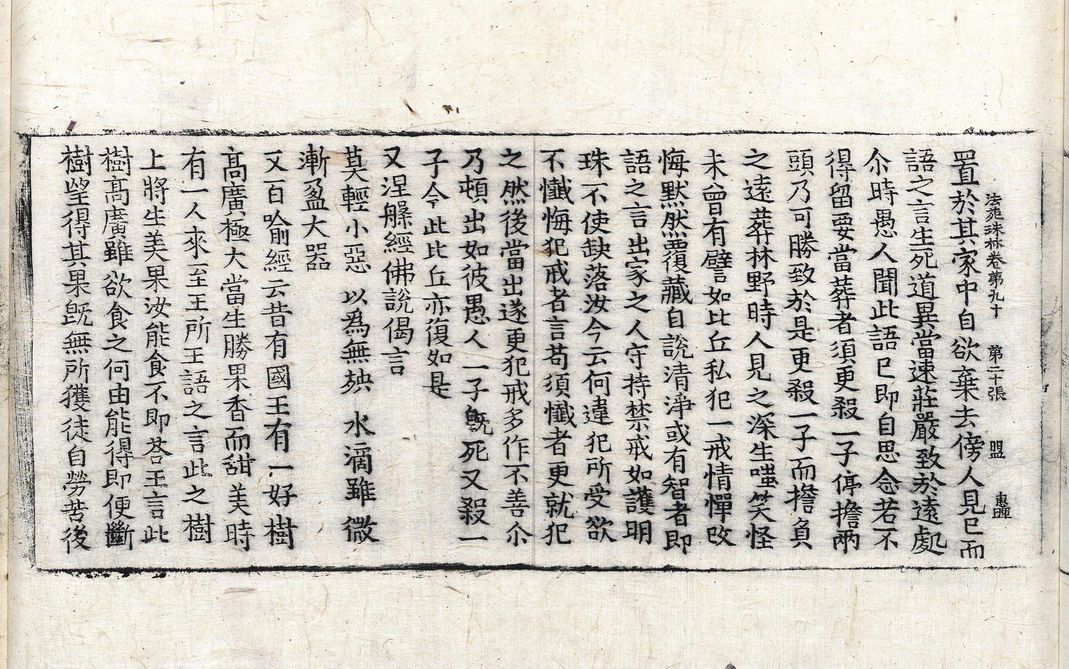 置於其家中自欲棄去傍人見已而
法苑珠林卷第九十 第二十張 盟
語之言生死道異當速莊嚴致於遠處
尒時愚人聞此語已即自思念若不
得留要當葬者須更殺一子停擔兩
頭乃可勝致於是更殺一子而擔負
之遠葬林野時人見之深生嗤笑怪
未曾有譬如比丘私犯一戒情憚改
悔默然覆藏自說清淨或有智者即
語之言出家之人守持禁戒如護明
珠不使缺落汝今云何違犯所受欲
不懺悔犯戒者言苟須懺者更就犯
之然後當出遂更犯戒多作不善尒
乃頓出如彼愚人一子旣死又殺一
子今此比丘亦復如是
又涅槃經佛說偈言
莫輕小惡 以為無殃 水滴雖微
漸盈大器
又百喻經云昔有國王有一好樹
髙廣極大當生勝果香而甜美時
有一人來至王所王語之言此之樹
上將生美果汝能食不即荅王言此
樹髙廣雖欲食之何由能得即便斷
樹望得其果旣無所獲徒自勞苦後